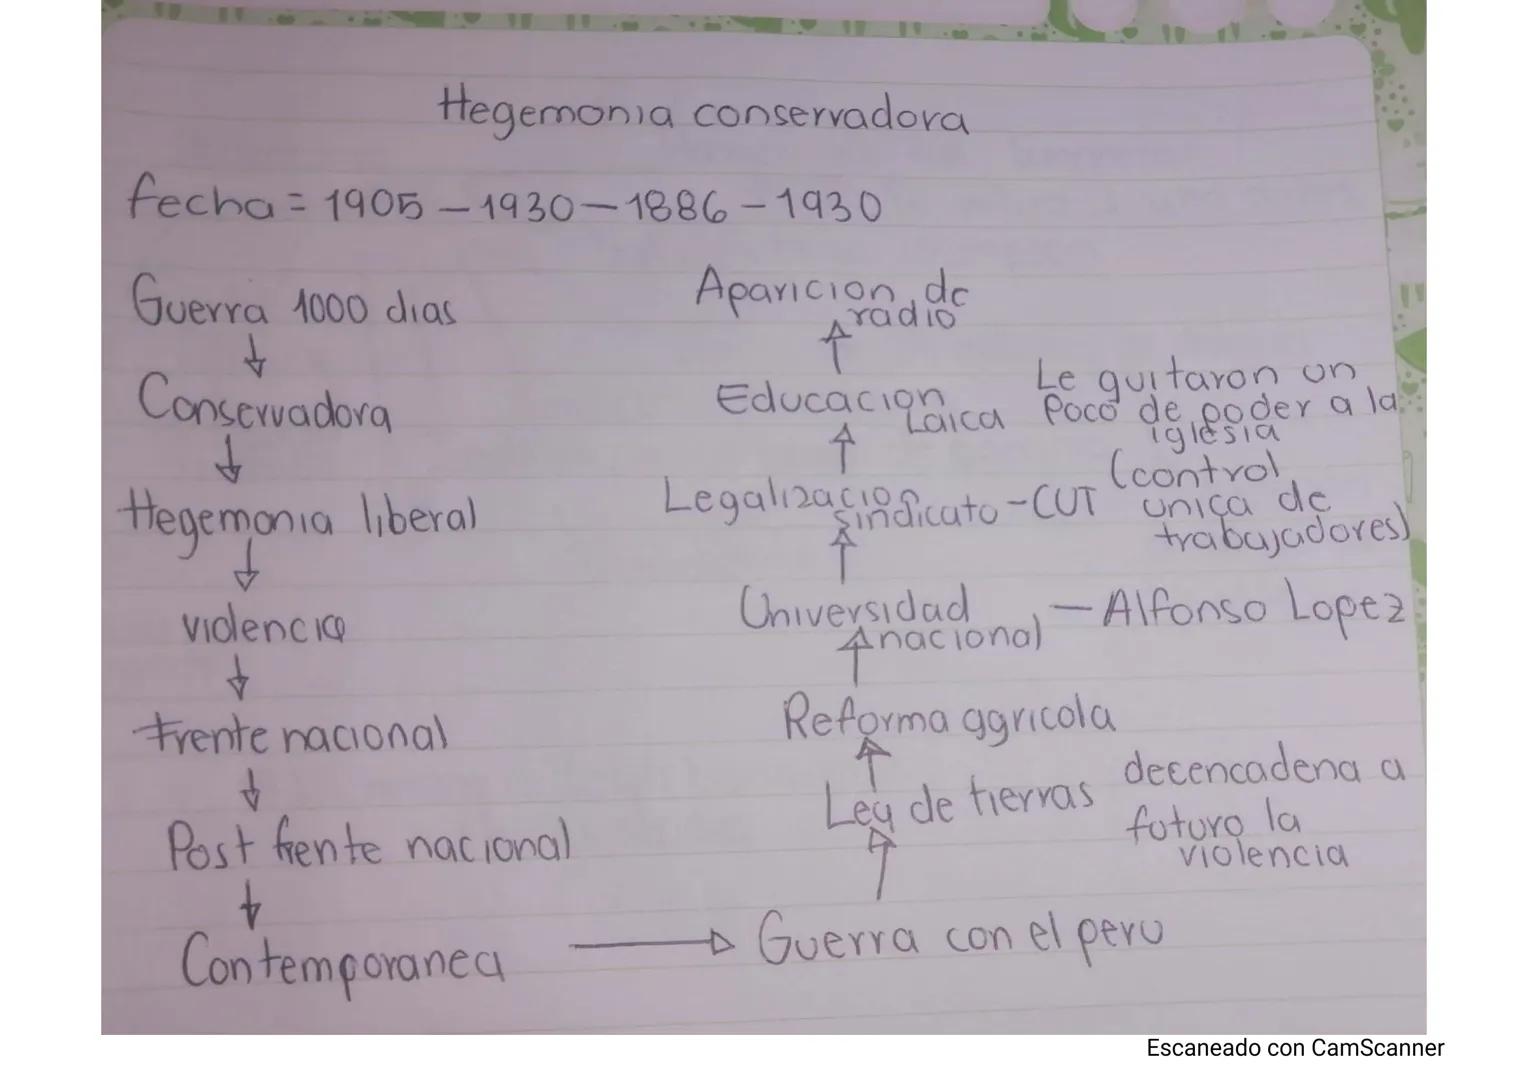 Hegemonia conservadora
fecha = 1905 – 1930 – 1886 – 1930
Guerra 1000 dias
↓
Conservadora
↓
Hegemonia liberal
↓
violencia
↓
Frente nacional
↓
Post frente nacional
↓
Contemporanea → Guerra con el peru
↑
Ley de tierras decencadena a
futuro la
violencia
↑
Reforma agricola
↑
Universidad
nacional – Alfonso Lopez
↑
Legalizacion
sindicato - CUT (control
unica de
trabajadores)
↑
Educacion
Laica Le quitaron un
Poco de poder a la
iglesia
↑
Aparicion de
radio
Escaneado con CamScanner